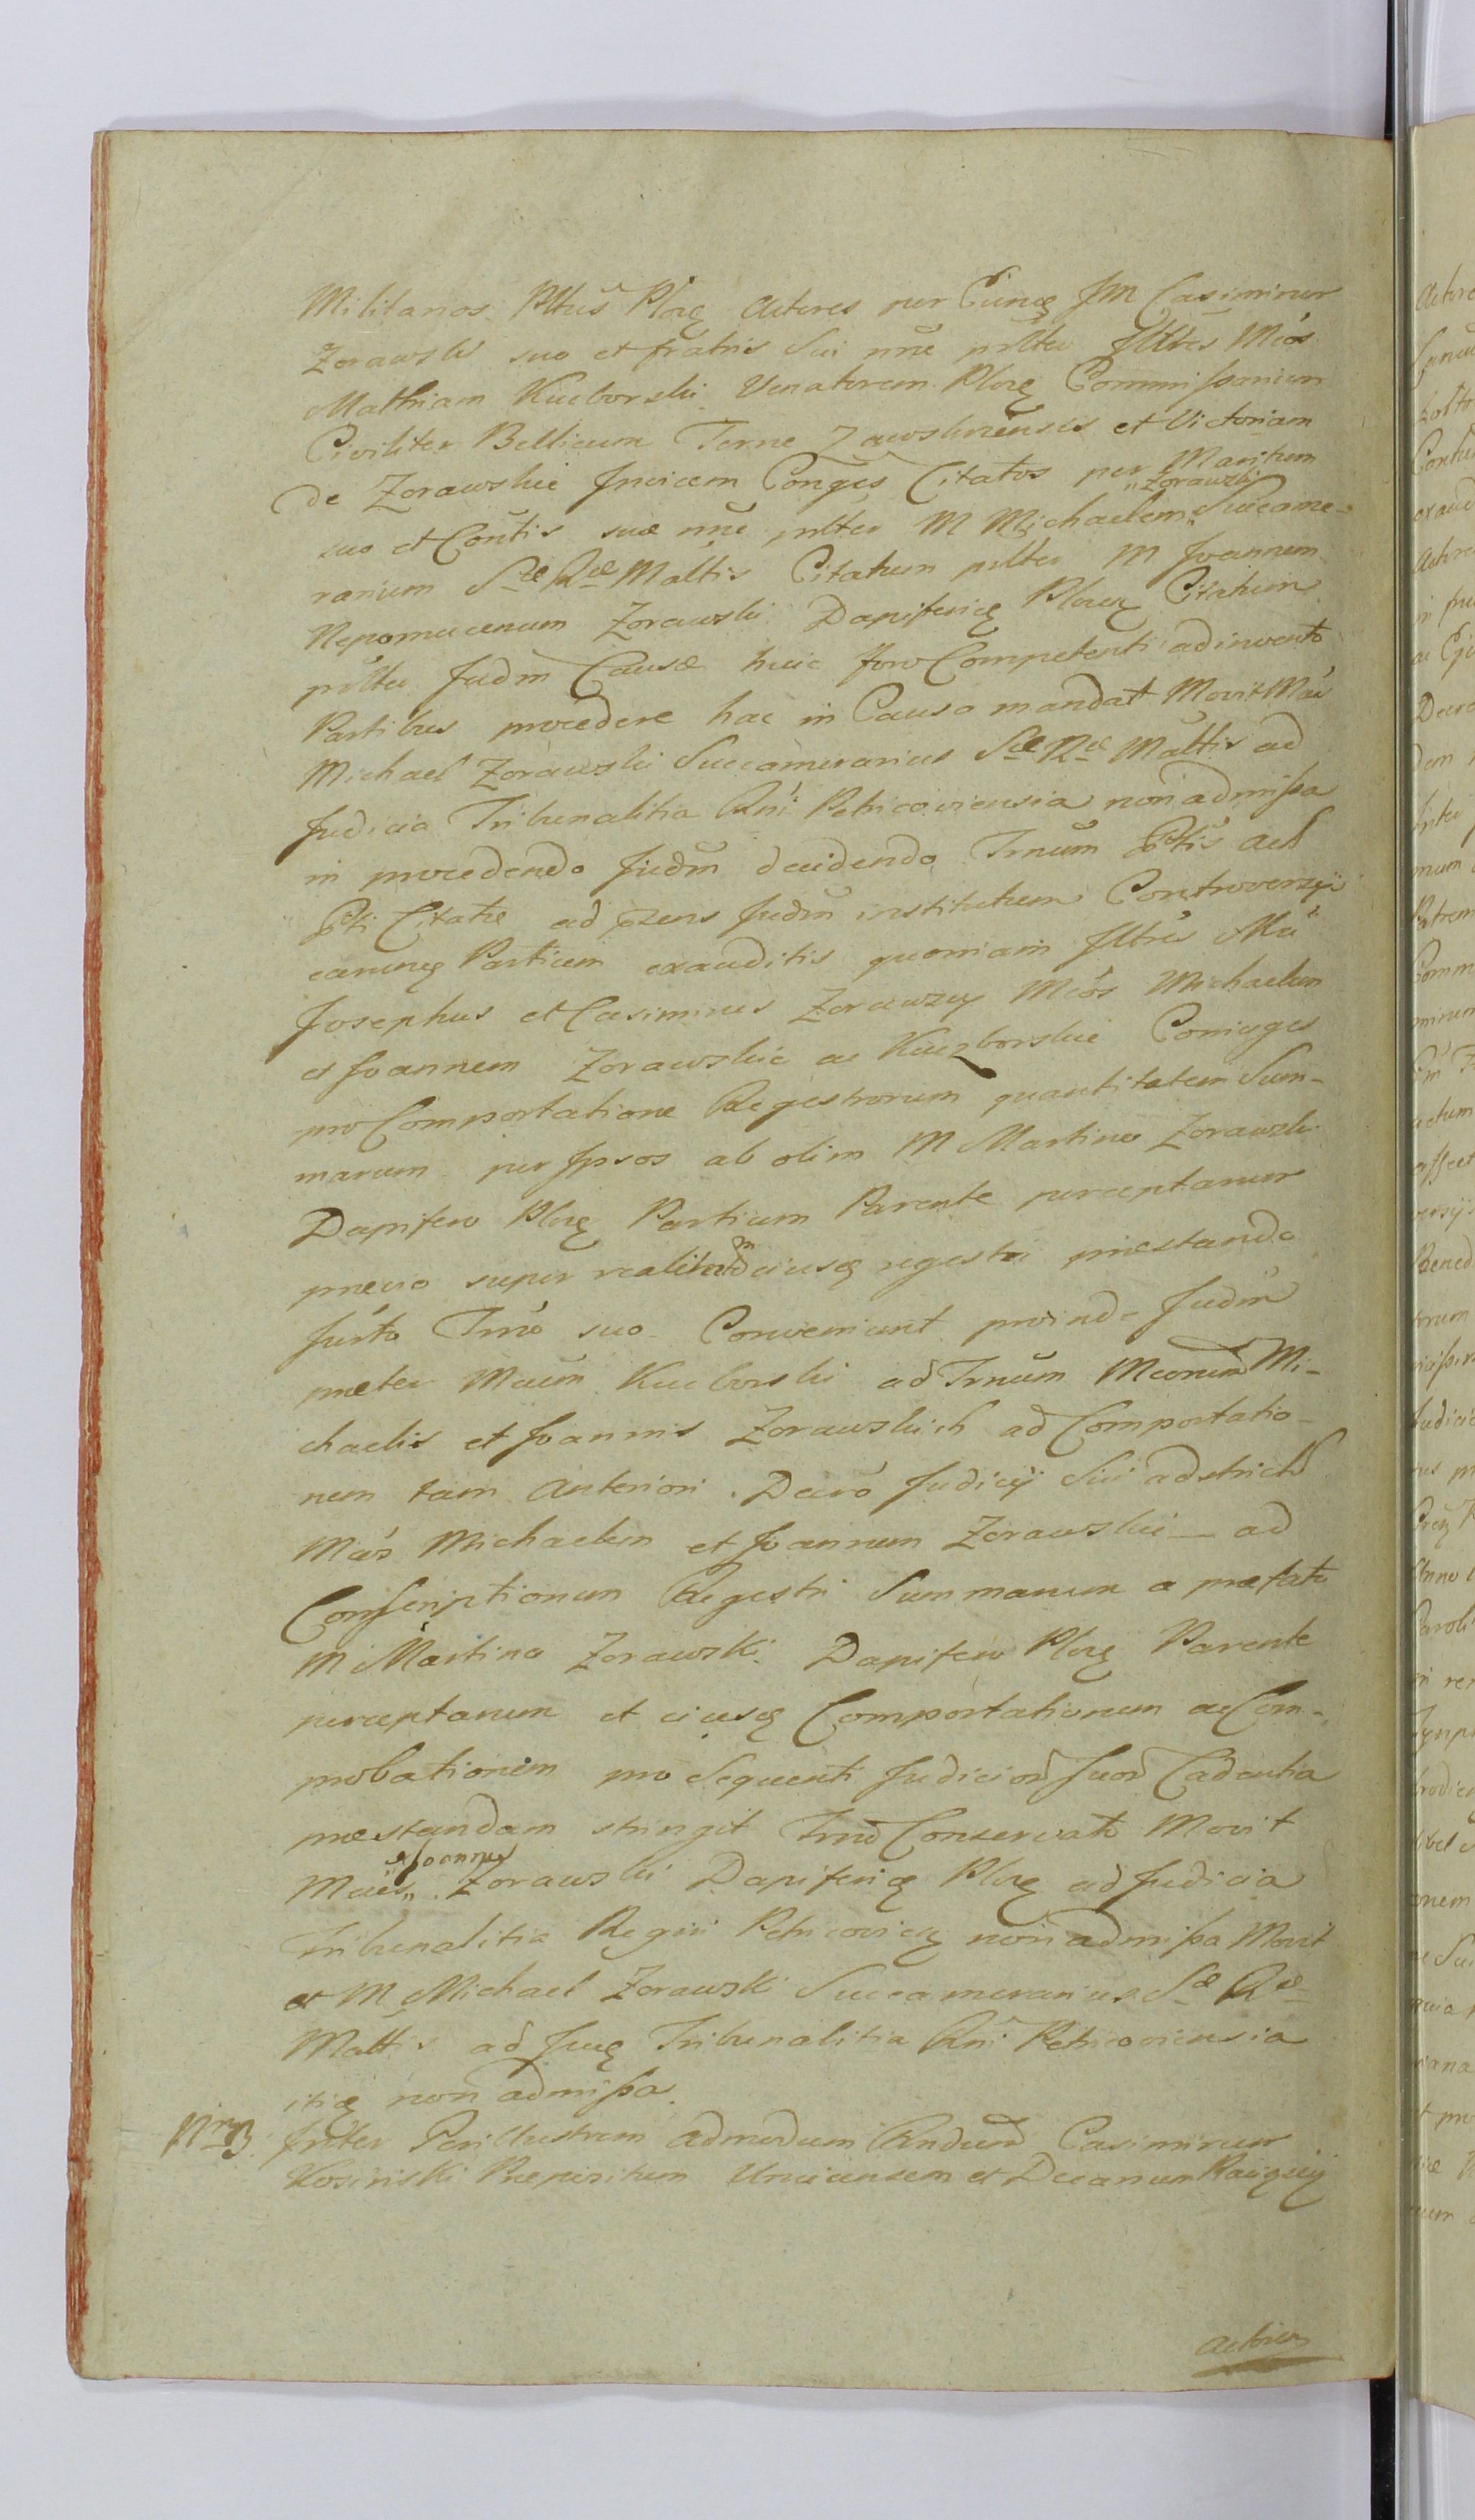 Militares Pltus Plocę Actores per Eundę JM Casimirum
Zorawski suo et fratris sui nne prltes Illtes Mcos
Mathiam Kuczborski Venatorem Plocę Commissarium
Civiliter Bellicum Terrę Zawskrzensis et Victoriam
de Zorawskie Invicem Conges Citatos per Maritum
suo et Contis suæ nne prlter M Michaelem „Zorawski„ Succame-
rarium Sæ Ræ Mattis Citatum prlter M Joannem
Nepomucenum Zorawski Dapiferię Plocę Citatum
prlter Judm Causæ huic foro Competenti adinvento
Partibus procedere hac in Causa mandat Movit Mcus
Michael Zorawski Succamerarius Sæ Ræ Mattis ad
Judicia Tribunalitia Rni Petricoviensia non admissa
in procedendo Judm decidendo Trnum Ptis act
Pti Citatæ ad pzens Judm institutum Controversijs
earumq Partium exauditis quoniam Illtris Mci
Josephus et Casimirus Zorawscy Mcos Michaelem
et Joannem Zorawskie ac Kuczborskie Coniuges
pro Comportatione Regestrorum quantitatem Sum-
marum per Ipsos ab olim M Martino Zorawski
Dapifero Plocę Partium Parente perceptarum
prævio super realitatem eiusq regestri præstando
Jurto Trno suo Conveniunt proinde Judm
præter Mcum Kucborski ad Trnum Mcorum Mi-
chaelis et Joannis Zorawskich ad Comportatio-
nem tam Anteriori Decro Judicij Sui adstrictos
Mcos Michaelem et Joannem Zorawskie – ad
Conscriptionem Regestri Summarum a præfato
M Martino Zorawski Dapifero Plocę Parente
perceptarum et eiusq Comportationem ac Com-
probationem pro Sequenti Judiciorum Suorum Cadentia
præstandam stringit Trno Conservato Movit
Mcus „Joannes„ Zorawski Dapiferię Plocę ad Judicia
Tribunalitia Regni Petricovię non admissa Movit
et M Michael Zorawski Succamerarius Sæ Ræ
Mattis ad Jucę Tribunalitia Rni Petricoviensia
itię non admissa.
Nro 3. Inter Perillustrem Admodum Rndum Casimirum
Kosinski Præpositum Unieiensem et Decanum Raiguy
Actorem